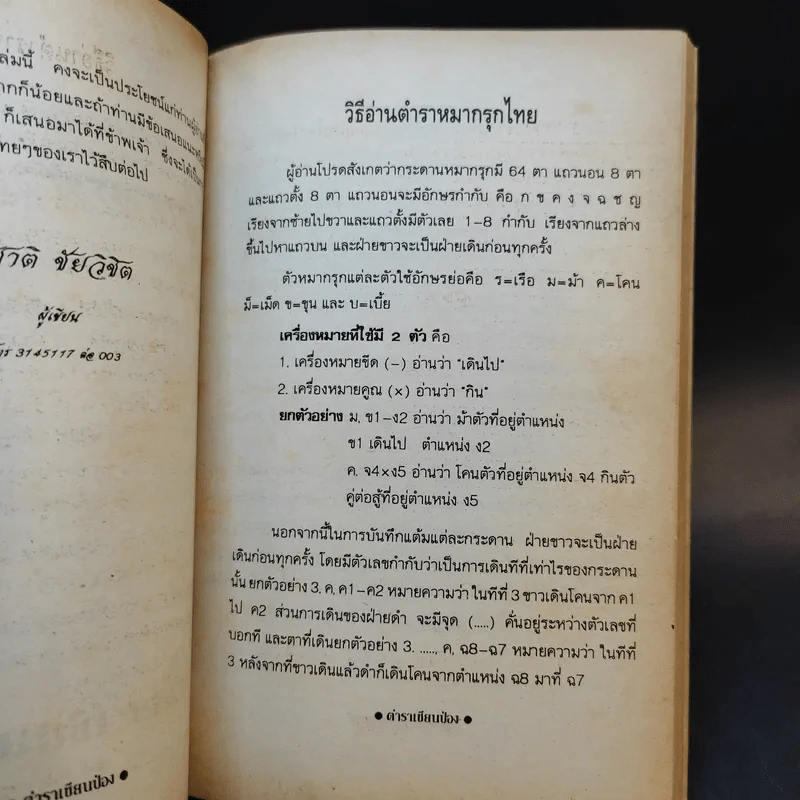 ล่มนี้ คงจะเป็นประโยชน์แก่ท่านผู้
ากก็น้อยและถ้าท่านมีข้อเสนอแนะ
ก็เสนอมาได้ที่ข้าพเจ้า ซึ่งจะได้เป็น
ไทยๆของเราไว้สืบต่อไป
ชาติ ชัยวิชิต
ผู้เขียน
โทร 3145117 ต่อ 003
ตำราเซียนป๋อง ●
วิธีอ่านตำราหมากรุกไทย
ผู้อ่านโปรดสังเกตว่ากระดานหมากรุกมี 64 ตา แถวนอน 8 ตา
และแถวตั้ง 8 ตา แถวนอนจะมีอักษรกำกับ คือ ก ข ค ง จ ฉ ช ญ
เรียงจากซ้ายไปขวาและแถวตั้งมีตัวเลย 1-8 กำกับ เรียงจากแถวล่าง
ขึ้นไปหาแถวบน และฝ่ายขาวจะเป็นฝ่ายเดินก่อนทุกครั้ง
ตัวหมากรุกแต่ละตัวใช้อักษรย่อคือ ร=เรือ ม=ม้า ค=โคน
ม็=เม็ด ข=ขุน และ บ=เบี้ย
เครื่องหมายที่ใช้มี 2 ตัว คือ
1. เครื่องหมายขีด (-) อ่านว่า "เดินไป"
2. เครื่องหมายคูณ (×) อ่านว่า "กิน"
ยกตัวอย่าง ม, ข1-ง2 อ่านว่า ม้าตัวที่อยู่ตำแหน่ง
ข1 เดินไป ตำแหน่ง ง2
ค, จ4×ง5 อ่านว่า โคนตัวที่อยู่ตำแหน่ง จ4 กินตัว
คู่ต่อสู้ที่อยู่ตำแหน่ง ง5
นอกจากนี้ในการบันทึกแต้มแต่ละกระดาน ฝ่ายขาวจะเป็นฝ่าย
เดินก่อนทุกครั้ง โดยมีตัวเลขกำกับว่าเป็นการเดินทีที่เท่าไรของกระดาน
นั้น ยกตัวอย่าง 3. ค, ค1-ค2 หมายความว่า ในทีที่ 3 ขาวเดินโคนจาก ค1
ไป ค2 ส่วนการเดินของฝ่ายดำ จะมีจุด (.....) คั่นอยู่ระหว่างตัวเลขที่
บอกที และตาที่เดินยกตัวอย่าง 3. ....., ค, ฉ8-ฉ7 หมายความว่า ในทีที่
3 หลังจากที่ขาวเดินแล้วดำก็เดินโคนจากตำแหน่ง ฉ8 มาที่ ฉ7
● ตำราเซียนป๋อง ●